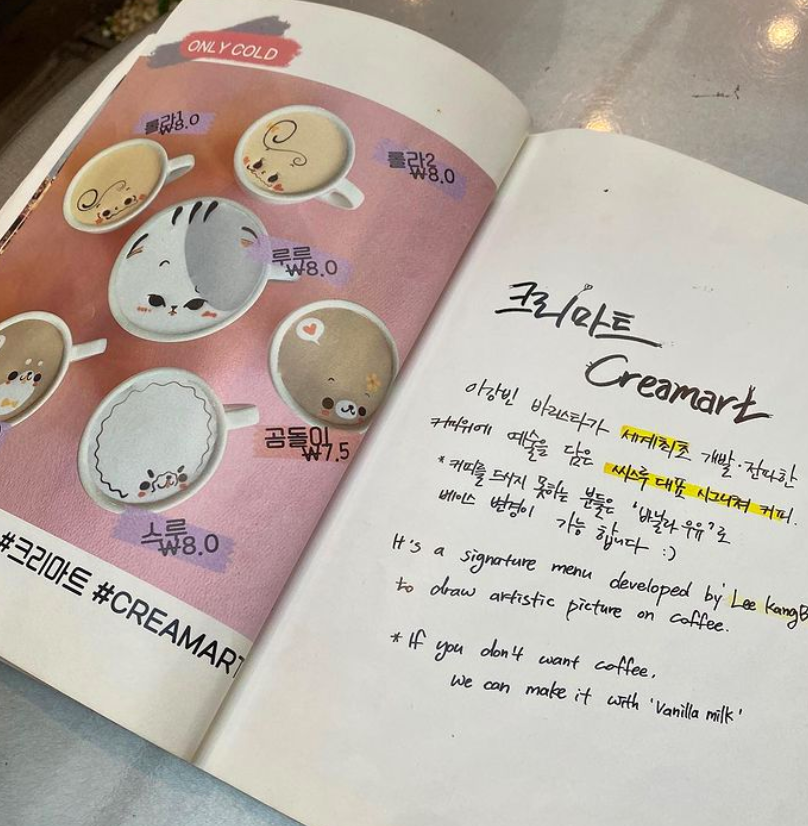 ONLY COLD
롤라1
₩8.0
롤라2
₩8.0
루루
₩8.0
곰돌이
₩7.5
스루
₩8.0
#크리마트 #CREAMART
크리마트
Creamart
이강빈 바리스타가 세계최초 개발·전파한
커피위에 예술을 담은 씨스루 대표 시그니쳐 커피.
*커피를 드시지 못하는 분들은 '바닐라 우유'로
베이스 변경이 가능 합니다 :)
It's a signature menu developed by Lee KangB
to draw artistic picture on coffee.
* If you don't want coffee,
we can make it with 'Vanilla milk'